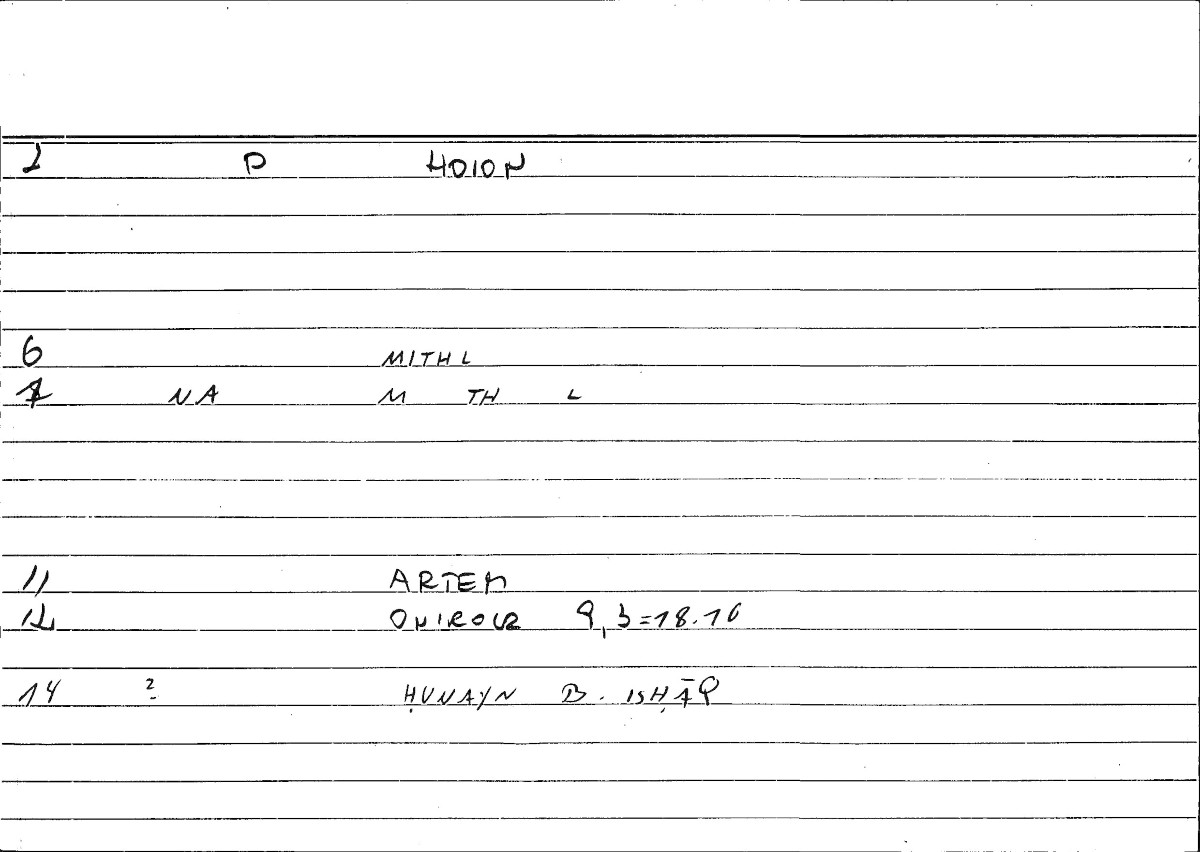 1 P HOION
6 MITHL
7 NA M TH L
11 ARTEM
12 ONIROCR 9,3=18.16
14 2 ḤUNAYN B. ISḤĀQ